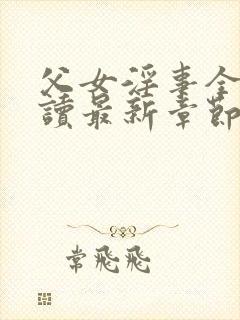 父女淫事全
讀最新章節
常飛飛